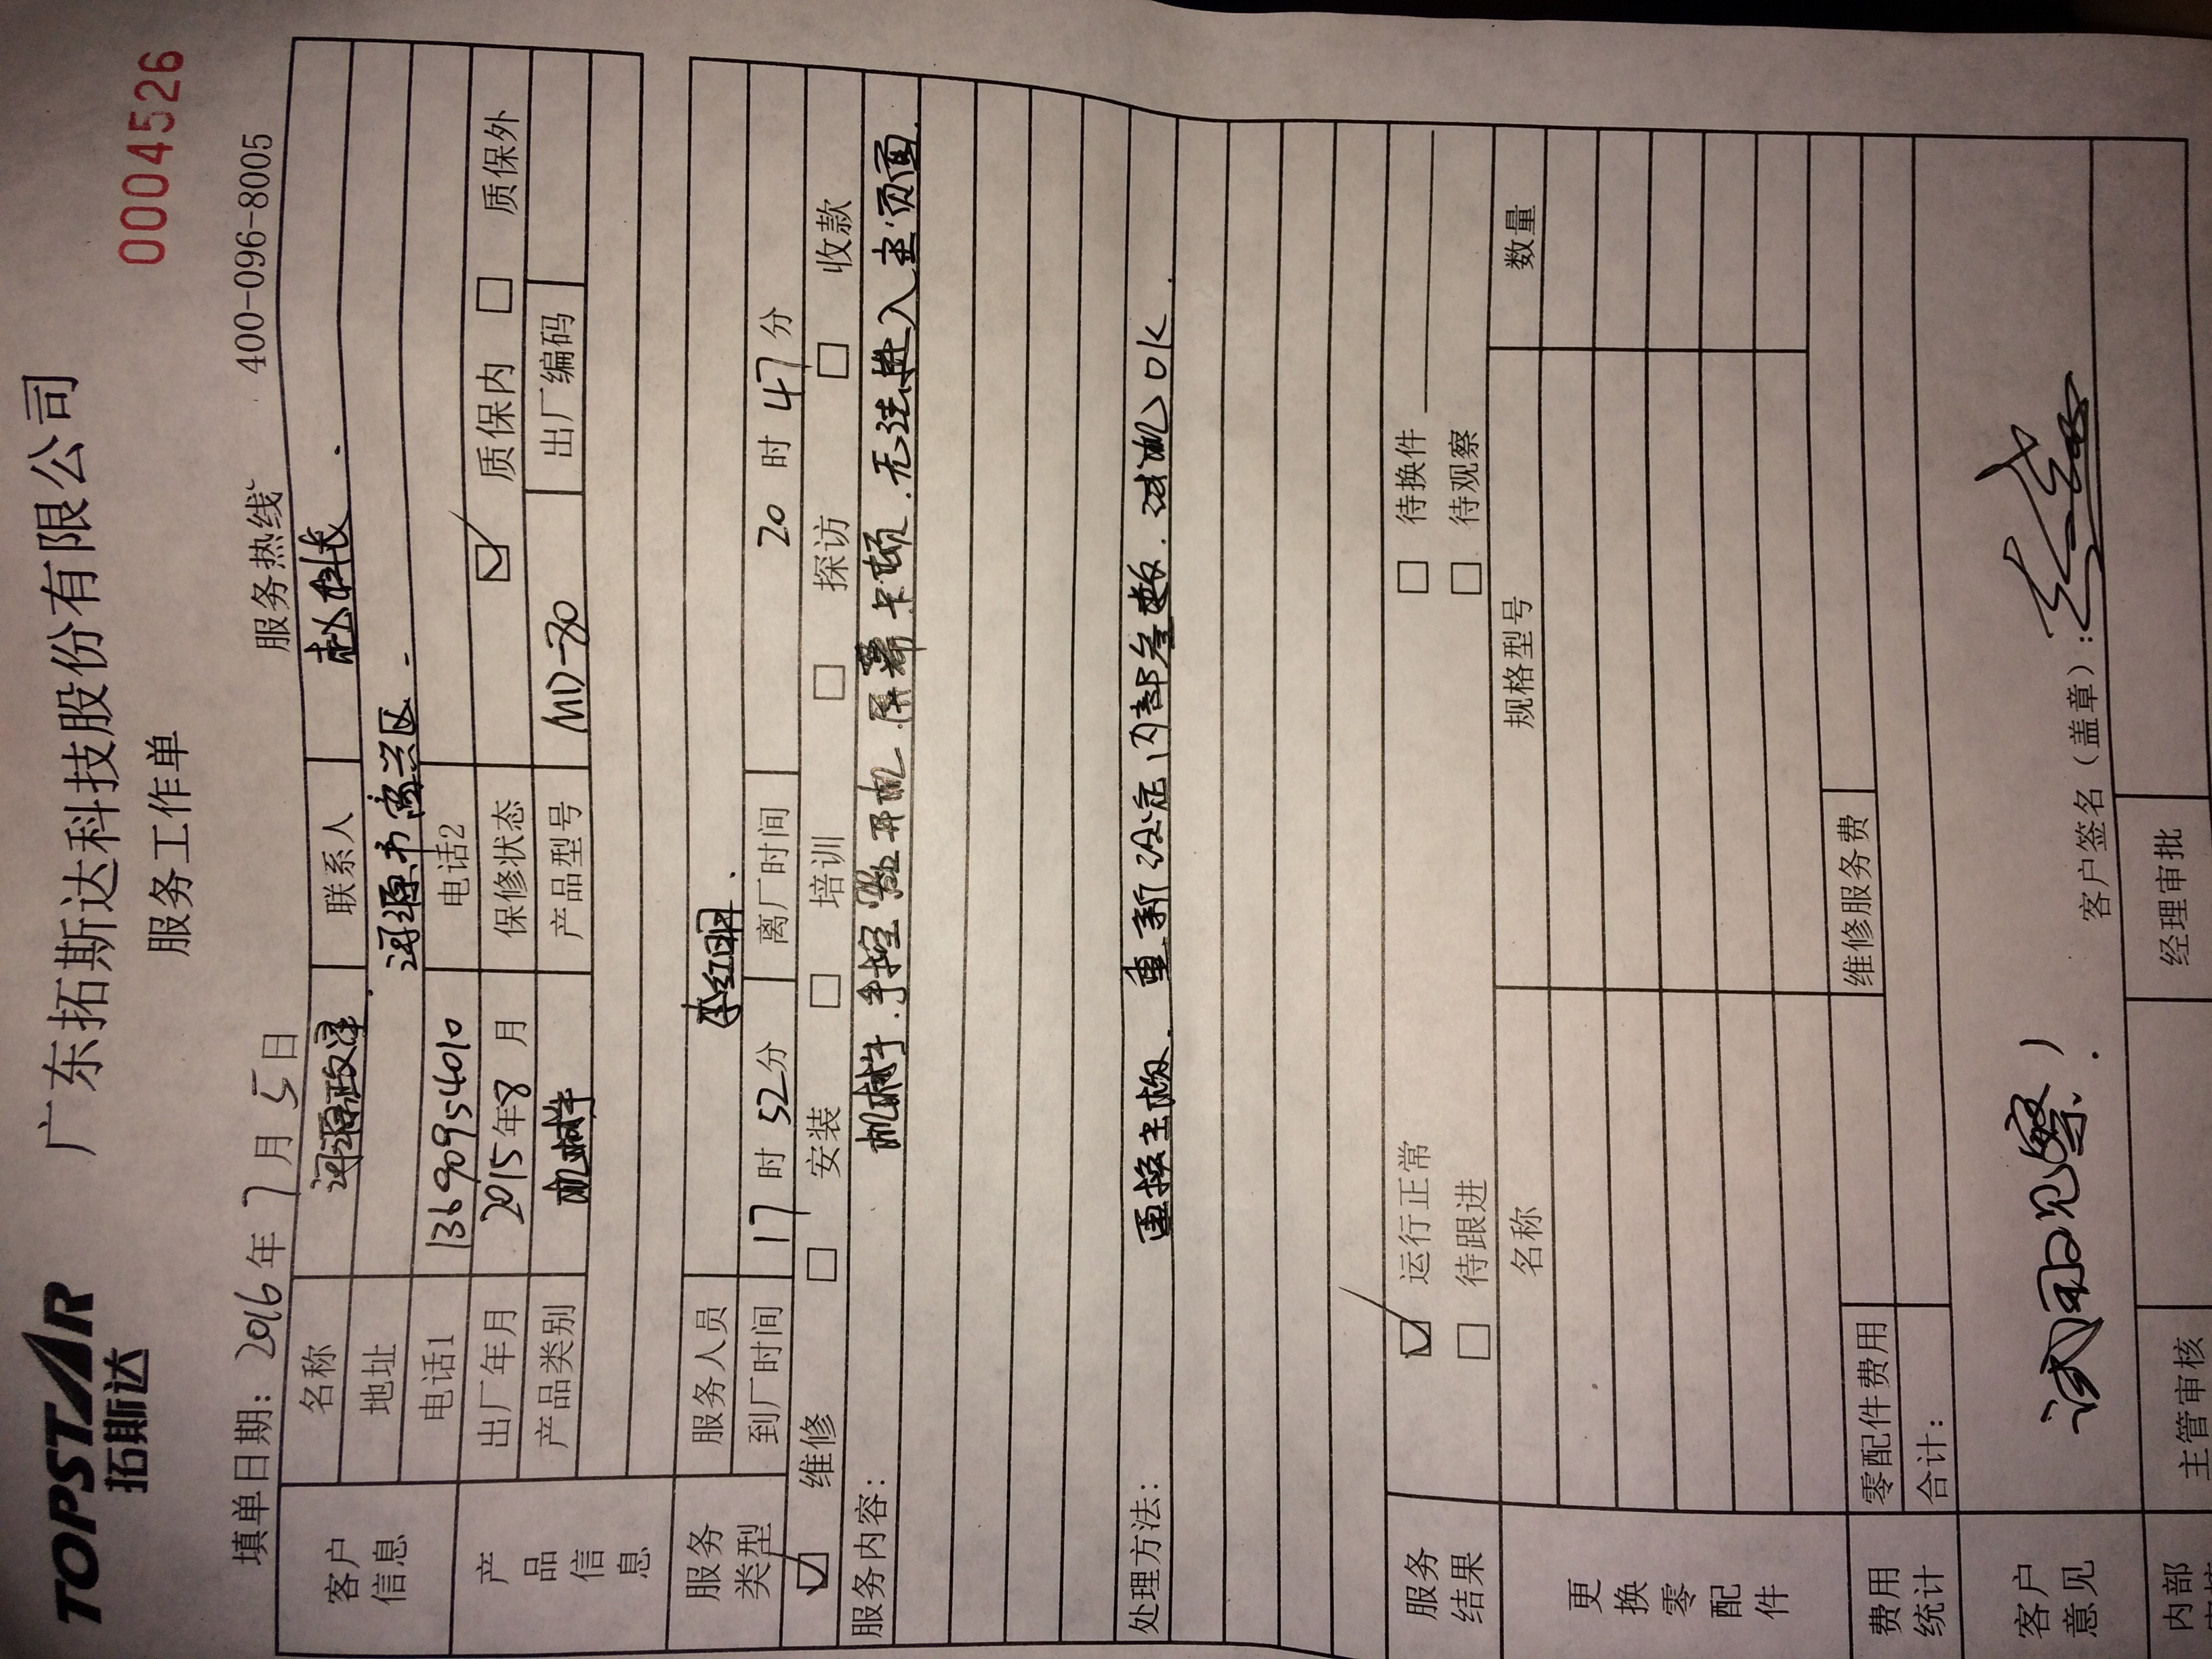 TOPSTAR
拓斯达
广东拓斯达科技股份有限公司
服务工作单
0004526
填单日期：2016年7月5日
服务热线 400-096-8005
客户信息
名称 河源政泽 联系人 赵科长
地址 河源市高兴区
电话1 13690954010 电话2
产品信息
出厂年月 2015年8月 保修状态 质保内 质保外
产品类别 机械手 产品型号 MD-70 出厂编码
服务类型
服务人员 李红明
到厂时间 17时52分 离厂时间 20时47分
维修 安装 培训 探访 收款
服务内容： 机械手.手控器开机.屏幕卡顿.无法进入主页面.
处理方法： 更换主板.重新设定内部参数.试机OK.
服务结果
运行正常 待换件
待跟进 待观察
更换零配件
名称 规格型号 数量
费用统计
零配件费用 维修服务费
合计：
客户意见
试用观察！
客户签名（盖章）：
内部
主管审核 经理审批